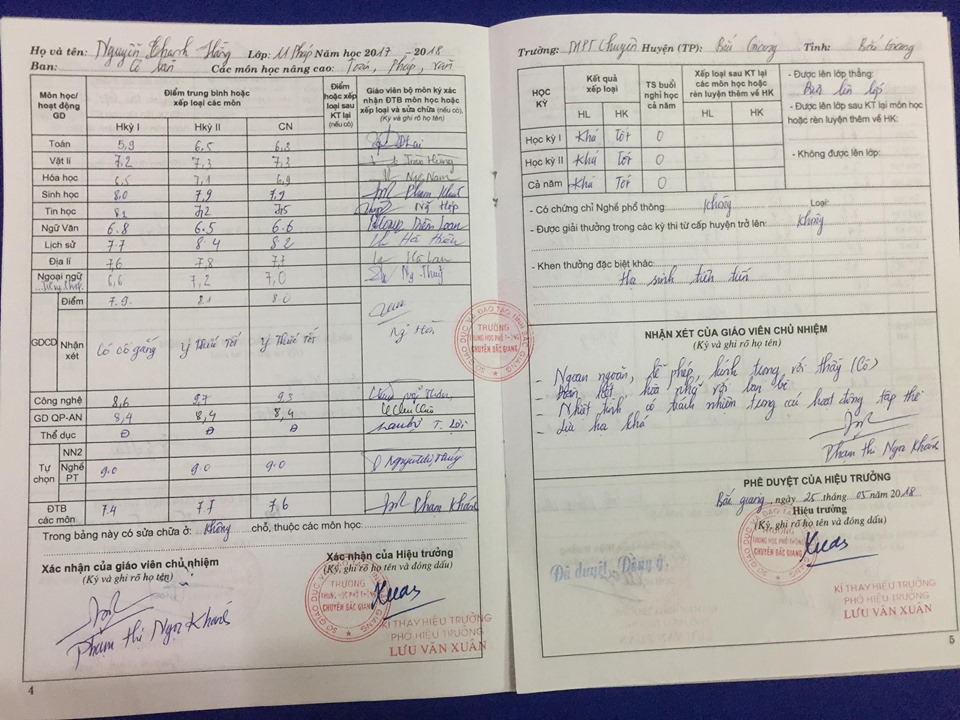 Họ và tên: Nguyễn Thanh Hằng Lớp: 11 Pháp Năm học 2017 - 2018
Ban: Cơ bản Các môn học nâng cao: Toán, Pháp, Văn
Môn học/ hoạt động GD
Điểm trung bình hoặc xếp loại các môn
Điểm hoặc xếp loại sau KT lại (nếu có)
Giáo viên bộ môn ký xác nhận ĐTB môn học hoặc xếp loại và sửa chữa (nếu có), (Ký và ghi rõ họ tên)
Hkỳ I Hkỳ II CN
Toán 5,9 6,5 6,3
Vật lí 7,2 7,3 7,3
Hóa học 6,5 7,1 6,9 Ng. Nam
Sinh học 8,0 7,9 7,9 Phạm Khánh
Tin học 8,1 7,2 7,5 Ng Hợp
Ngữ Văn 6.8 6.5 6.6 Diên Loan
Lịch sử 7.7 8.4 8.2 Hà Hiền
Địa lí 7,6 7,8 7,7 Lan
Ngoại ngữ 6,6 7,2 7,0 Ng Thuỷ
Tiếng Pháp
GDCD Điểm 7.9. 8.1 8.0
Nhận xét Có cố gắng ý thức tốt ý thức tốt
Công nghệ 8,6 9,7 9,3
GD QP-AN 8,4 8,4 8,4
Thể dục Đ Đ Đ
Tự chọn
NN2
Nghề PT 9.0 9.0 9.0
ĐTB các môn 7.4 7.7 7.6 Phạm Khánh
Trong bảng này có sửa chữa ở: Không chỗ, thuộc các môn học:
Xác nhận của giáo viên chủ nhiệm
(Ký và ghi rõ họ tên)
Phạm Thị Ngọc Khánh
Xác nhận của Hiệu trưởng
(Ký, ghi rõ họ tên và đóng dấu)
SỞ GIÁO DỤC VÀ ĐÀO TẠO TỈNH BẮC GIANG
TRƯỜNG
TRUNG HỌC PHỔ THÔNG
CHUYÊN BẮC GIANG
KÍ THAY HIỆU TRƯỞNG
PHÓ HIỆU TRƯỞNG
LƯU VĂN XUÂN
4
SỞ GIÁO DỤC VÀ ĐÀO TẠO TỈNH BẮC GIANG
TRƯỜNG
TRUNG HỌC PHỔ THÔNG
CHUYÊN BẮC GIANG
Trường: THPT Chuyên Huyện (TP): Bắc Giang Tỉnh: Bắc Giang
HỌC KỲ
Kết quả xếp loại
TS buổi nghỉ học cả năm
Xếp loại sau KT lại các môn học hoặc rèn luyện thêm về HK
HL HK HL HK
Học kỳ I Khá Tốt 0
Học kỳ II Khá Tốt 0
Cả năm Khá Tốt 0
- Được lên lớp thẳng:
Được lên lớp
- Được lên lớp sau KT lại môn học hoặc rèn luyện thêm về HK:
- Không được lên lớp:
- Có chứng chỉ Nghề phổ thông: Không Loại:
- Được giải thưởng trong các kỳ thi từ cấp huyện trở lên: không
- Khen thưởng đặc biệt khác:
Học sinh tiên tiến
NHẬN XÉT CỦA GIÁO VIÊN CHỦ NHIỆM
(Ký và ghi rõ họ tên)
- Ngoan ngoãn, lễ phép, kính trọng với thầy (Cô)
- Đoàn kết, hòa nhã với bạn bè
- Nhiệt tình có trách nhiệm trong các hoạt động tập thể
- Lực học khá
Phạm Thị Ngọc Khánh
PHÊ DUYỆT CỦA HIỆU TRƯỞNG
Bắc giang, ngày 25 tháng 05 năm 2018
Hiệu trưởng
(Ký, ghi rõ họ tên và đóng dấu)
Đã duyệt. Đồng ý
SỞ GIÁO DỤC VÀ ĐÀO TẠO TỈNH BẮC GIANG
TRƯỜNG
TRUNG HỌC PHỔ THÔNG
CHUYÊN BẮC GIANG
KÍ THAY HIỆU TRƯỞNG
PHÓ HIỆU TRƯỞNG
LƯU VĂN XUÂN
5